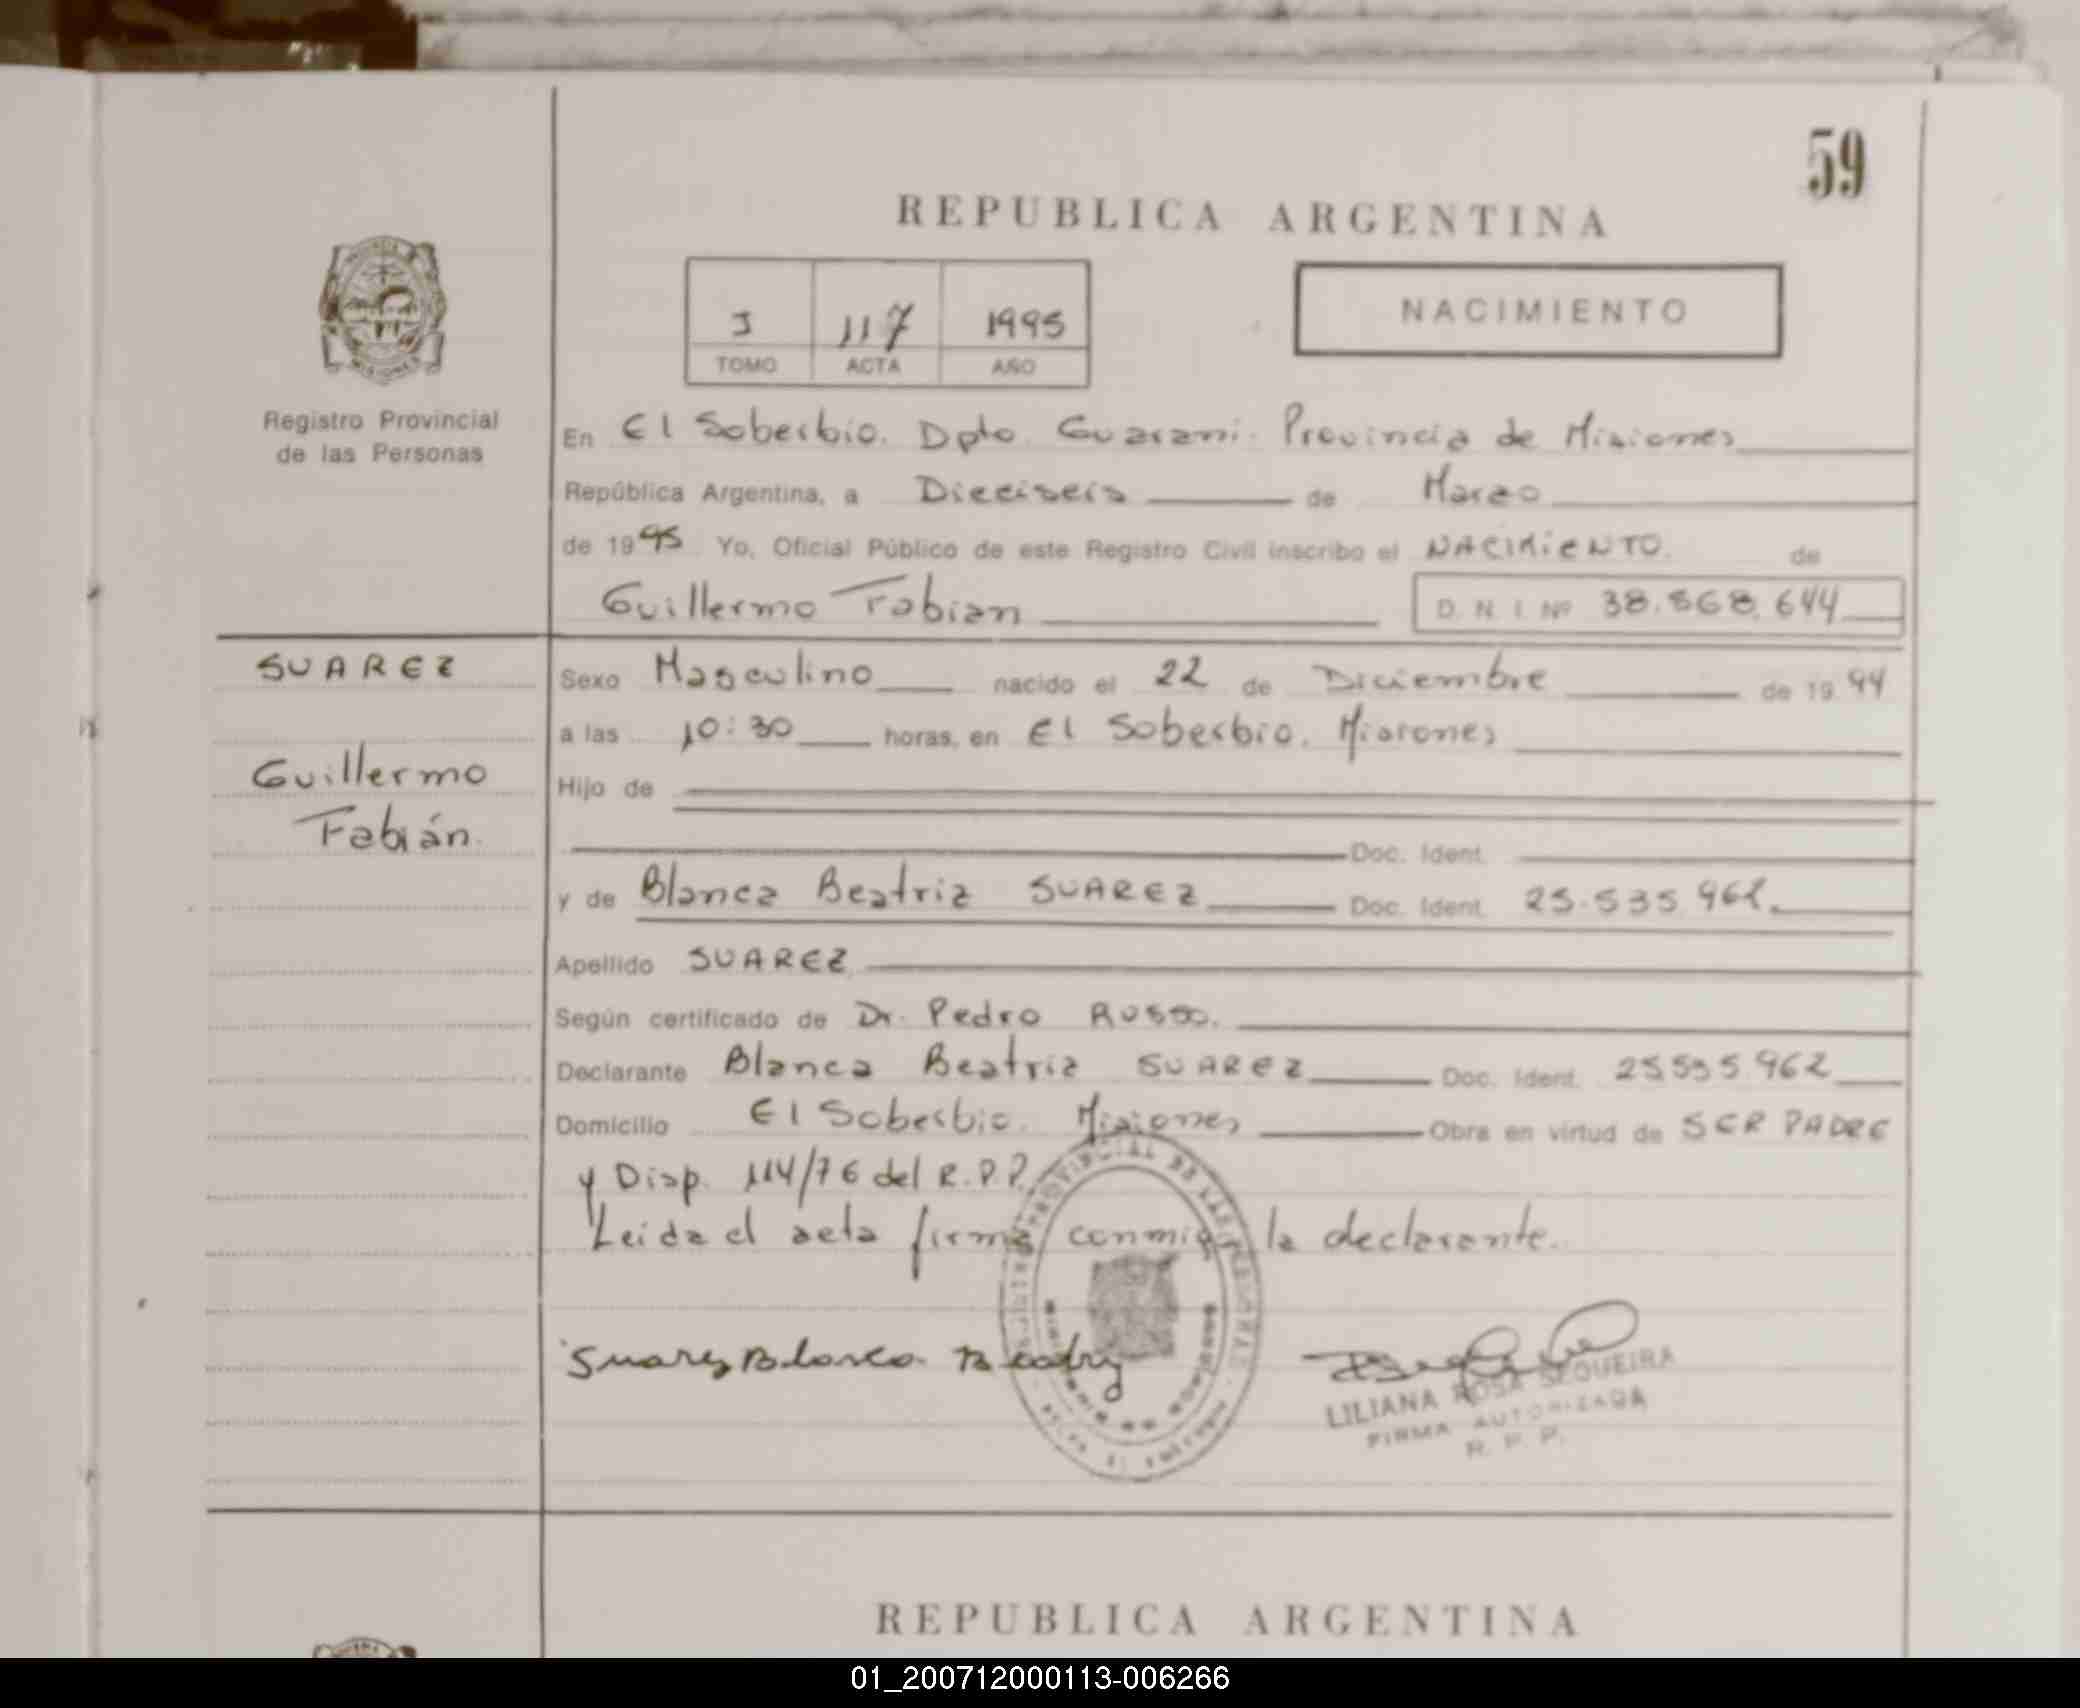 59
REPUBLICA ARGENTINA
J 117 1995
TOMO ACTA AÑO
NACIMIENTO
Registro Provincial
de las Personas
En El Soberbio. Dpto. Guarani. Provincia de Misiones
República Argentina, a Dieciseis de Marzo
de 1995 Yo, Oficial Público de este Registro Civil inscribo el NACIMIENTO. de
Guillermo Fabian D. N. I. Nº 38.868.644
SUAREZ
Guillermo
Fabián.
Sexo Masculino nacido el 22 de Diciembre de 19 94
a las 10:30 horas, en El Soberbio. Misiones
Hijo de
Doc. Ident.
y de Blanca Beatriz SUAREZ Doc. Ident. 25.535.962.
Apellido SUAREZ
Según certificado de Dr. Pedro RUSSO.
Declarante Blanca Beatriz SUAREZ Doc. Ident. 25.535.962
Domicilio El Soberbio. Misiones Obra en virtud de SER PADRE
y Disp. 114/76 del R.P.P.
Leida el acta firma conmigo la declarante.
Suarez Blanca Beatriz
LILIANA ROSA SEQUEIRA
FIRMA AUTORIZADA
R. P. P.
REPUBLICA ARGENTINA
01_200712000113-006266